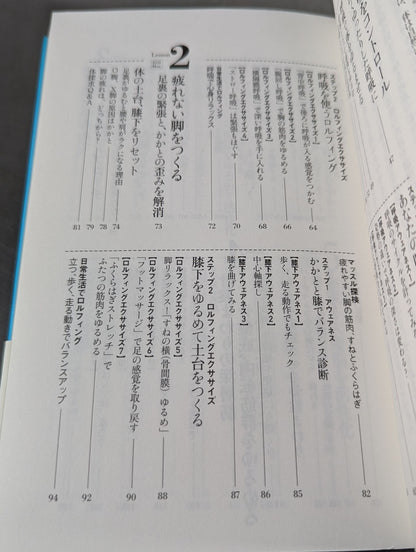 をコントロール
ロルフィングエクササイズ
呼吸を使うロルフィング
【ロルフィングエクササイズ1】
64
【ロルフィングエクササイズ2】
で胸の筋肉をゆるめる 66
【ロルフィングエクササイズ3】
「横隔膜呼吸」で深い呼吸を手に入れる 68
【ロルフィングエクササイズ4】
「ストロー呼吸」は緊張もほぐす 70
日常生活でロルフィング
呼吸で心身リラックス 72
Lesson
2 疲れない脚をつくる
足裏の緊張と、かかとの歪みを解消 73
体の土台、膝下をリセット
足裏がゆるむと腰や肩がラクになる理由 74
O脚、X脚の原因はかかと 78
脚の疲れは、どっちから? 79
Q&A 81
マッスル探検
疲れやすい脚の筋肉、すねとふくらはぎ 82
ステップ1 アウェアネス
かかとと膝でバランス診断
【膝下アウェアネス1】
歩く、走る動作でもチェック 85
【膝下アウェアネス2】
中心軸探し 86
【膝下アウェアネス3】
膝を曲げてみる 87
ステップ2 ロルフィングエクササイズ
膝下をゆるめて土台をつくる
【ロルフィングエクササイズ5】
脚リラックス－「すねの横(骨間膜)ゆるめ」 88
【ロルフィングエクササイズ6】
「フットマッサージ」で足の感覚を取り戻す 90
【ロルフィングエクササイズ7】
「ふくらはぎストレッチ」で
ふたつの筋肉をゆるめる 92
日常生活でロルフィング
立つ、歩く、走る動きでバランスアップ 94